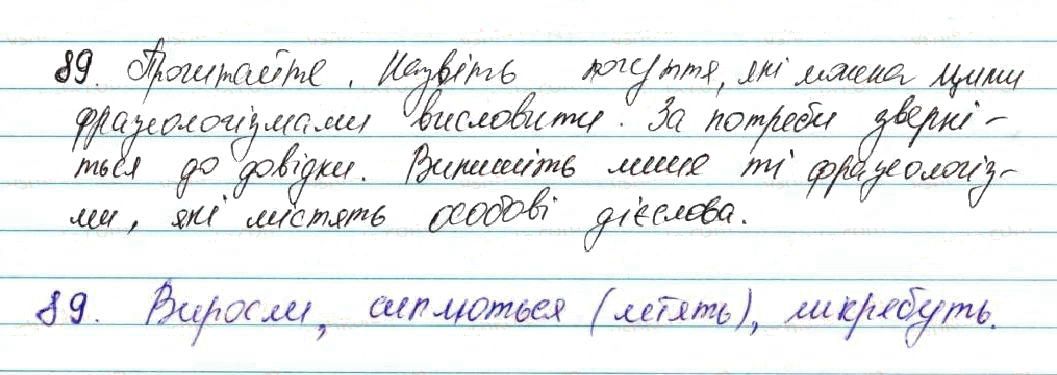 89. Прочитайте. Назвіть почуття, які можна цими
фразеологізмами висловити. За потреби зверні-
ться до довідки. Випишіть лише ті фразеологіз-
ми, які містять особові дієслова.
89. Виросли, сиплються (летять), шкребуть.